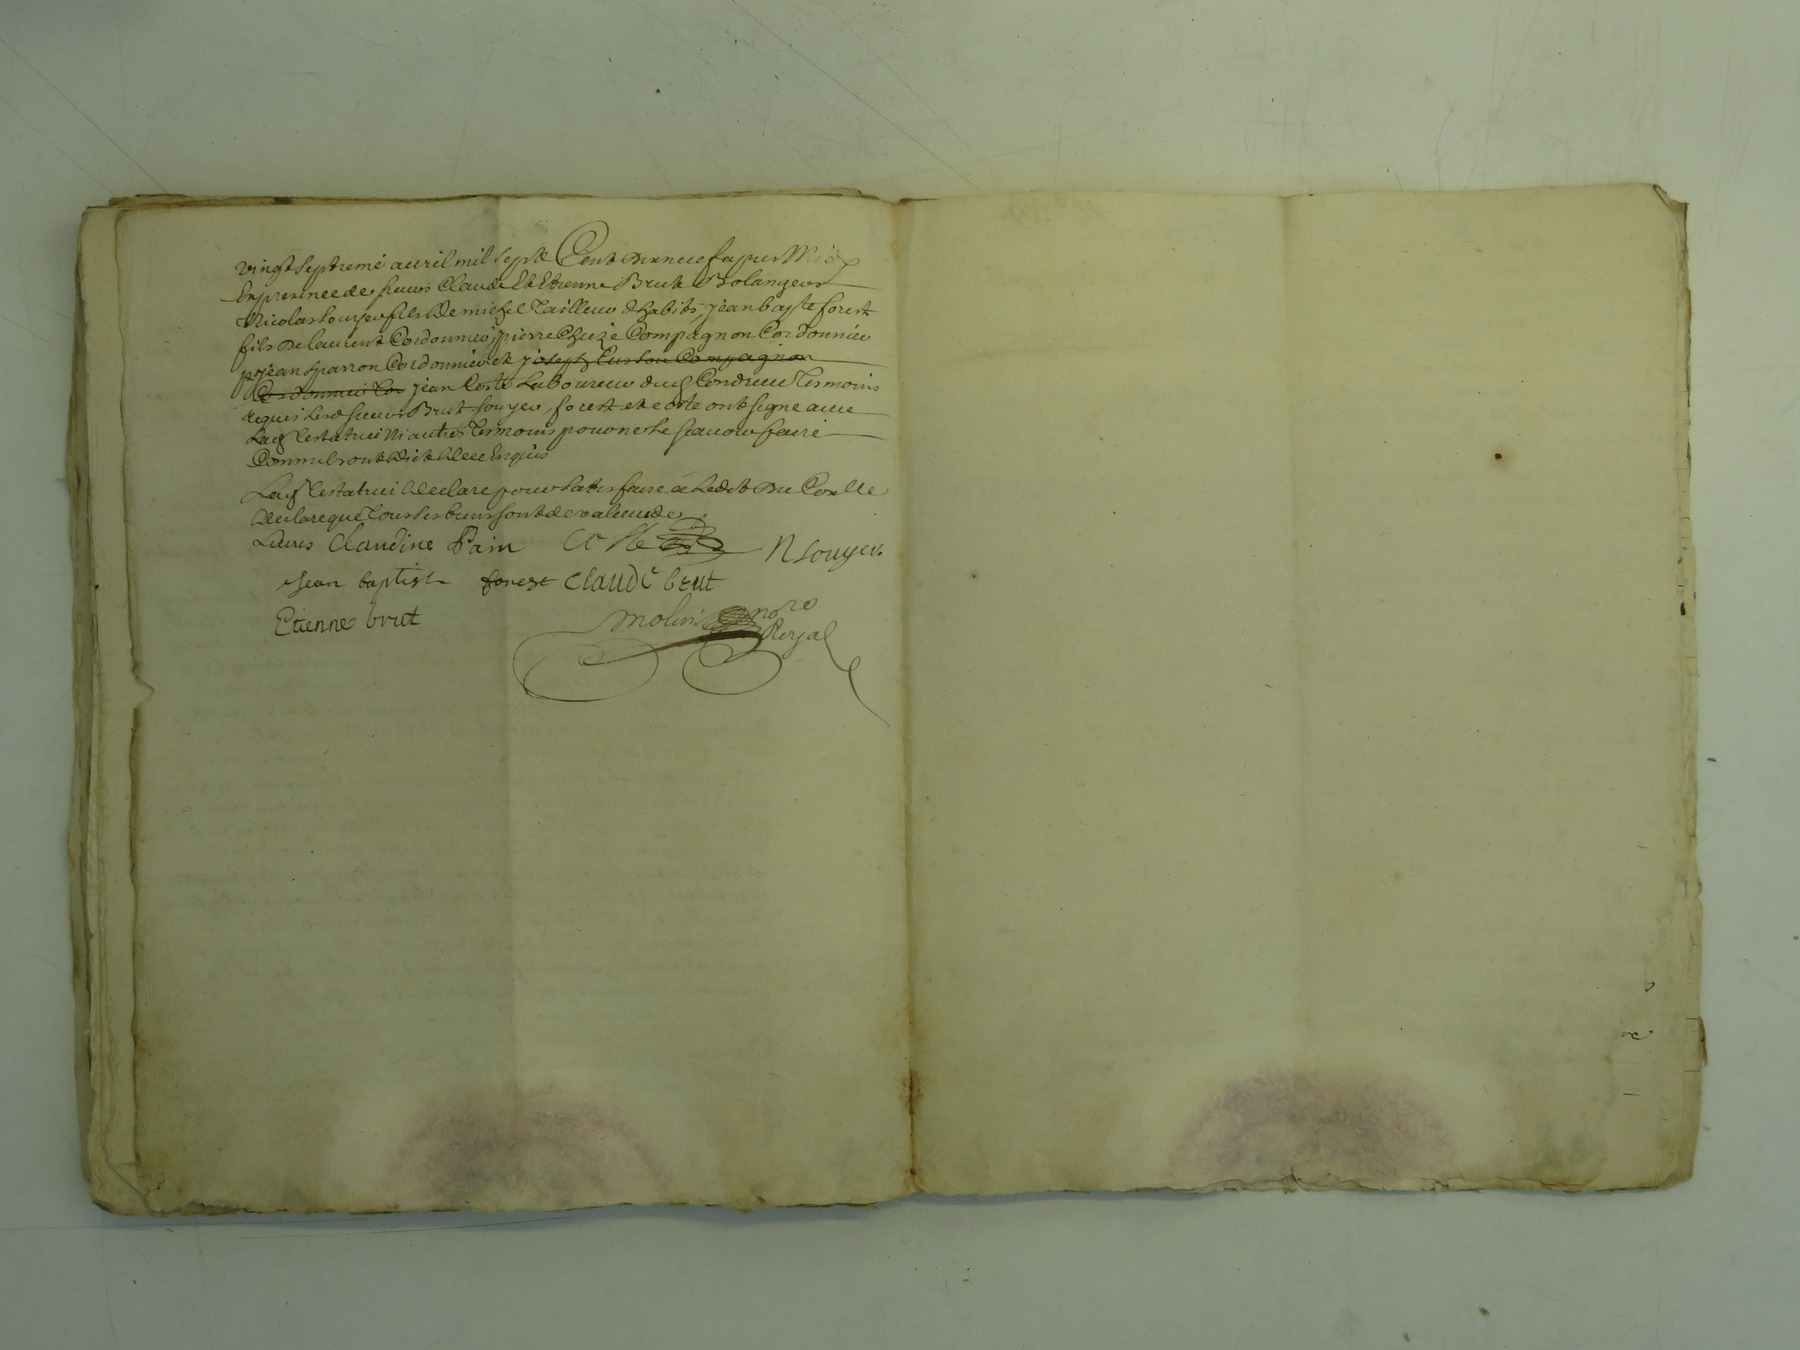 vingt septieme auril mil sept Cent dix neuf apres Midy
En presence de sieurs Claude Et Etienne Brut Bolangers
Nicolas souyer fils De michel Tailleur d'habits, jean baptiste forest
fils De laurent Cordonnier, pierre Cheze Compagnon Cordonnier
jean sparron Cordonnier et joseph Compagnon
Cordonnier Cor jean Coste Laboureur dud Condrieu Tesmoins
requis Lesd sieurs Brut souyer, forest et coste ont signe auec
Lad testatrice Ni autres Tesmoins pour ne le scauoir faire
Comme Ils ont Dit De ce Enquis
Lad Testatrice Declare pour satisfaire a Ledit Du Con
Declare que tous ses biens sont de valeur de
Liures Claudine Pain Coste N souyer
Jean baptist forest Claude brut
Etienne brut Molin no.re
Royal